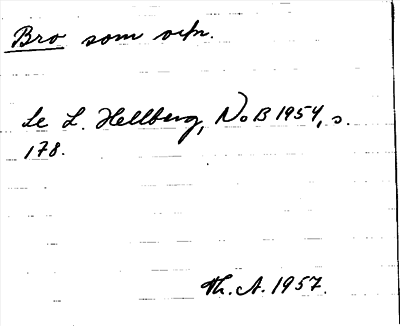 Bro som ortn.
Se L. Hellberg, NoB 1954, s.
178.
Th. A. 1957.